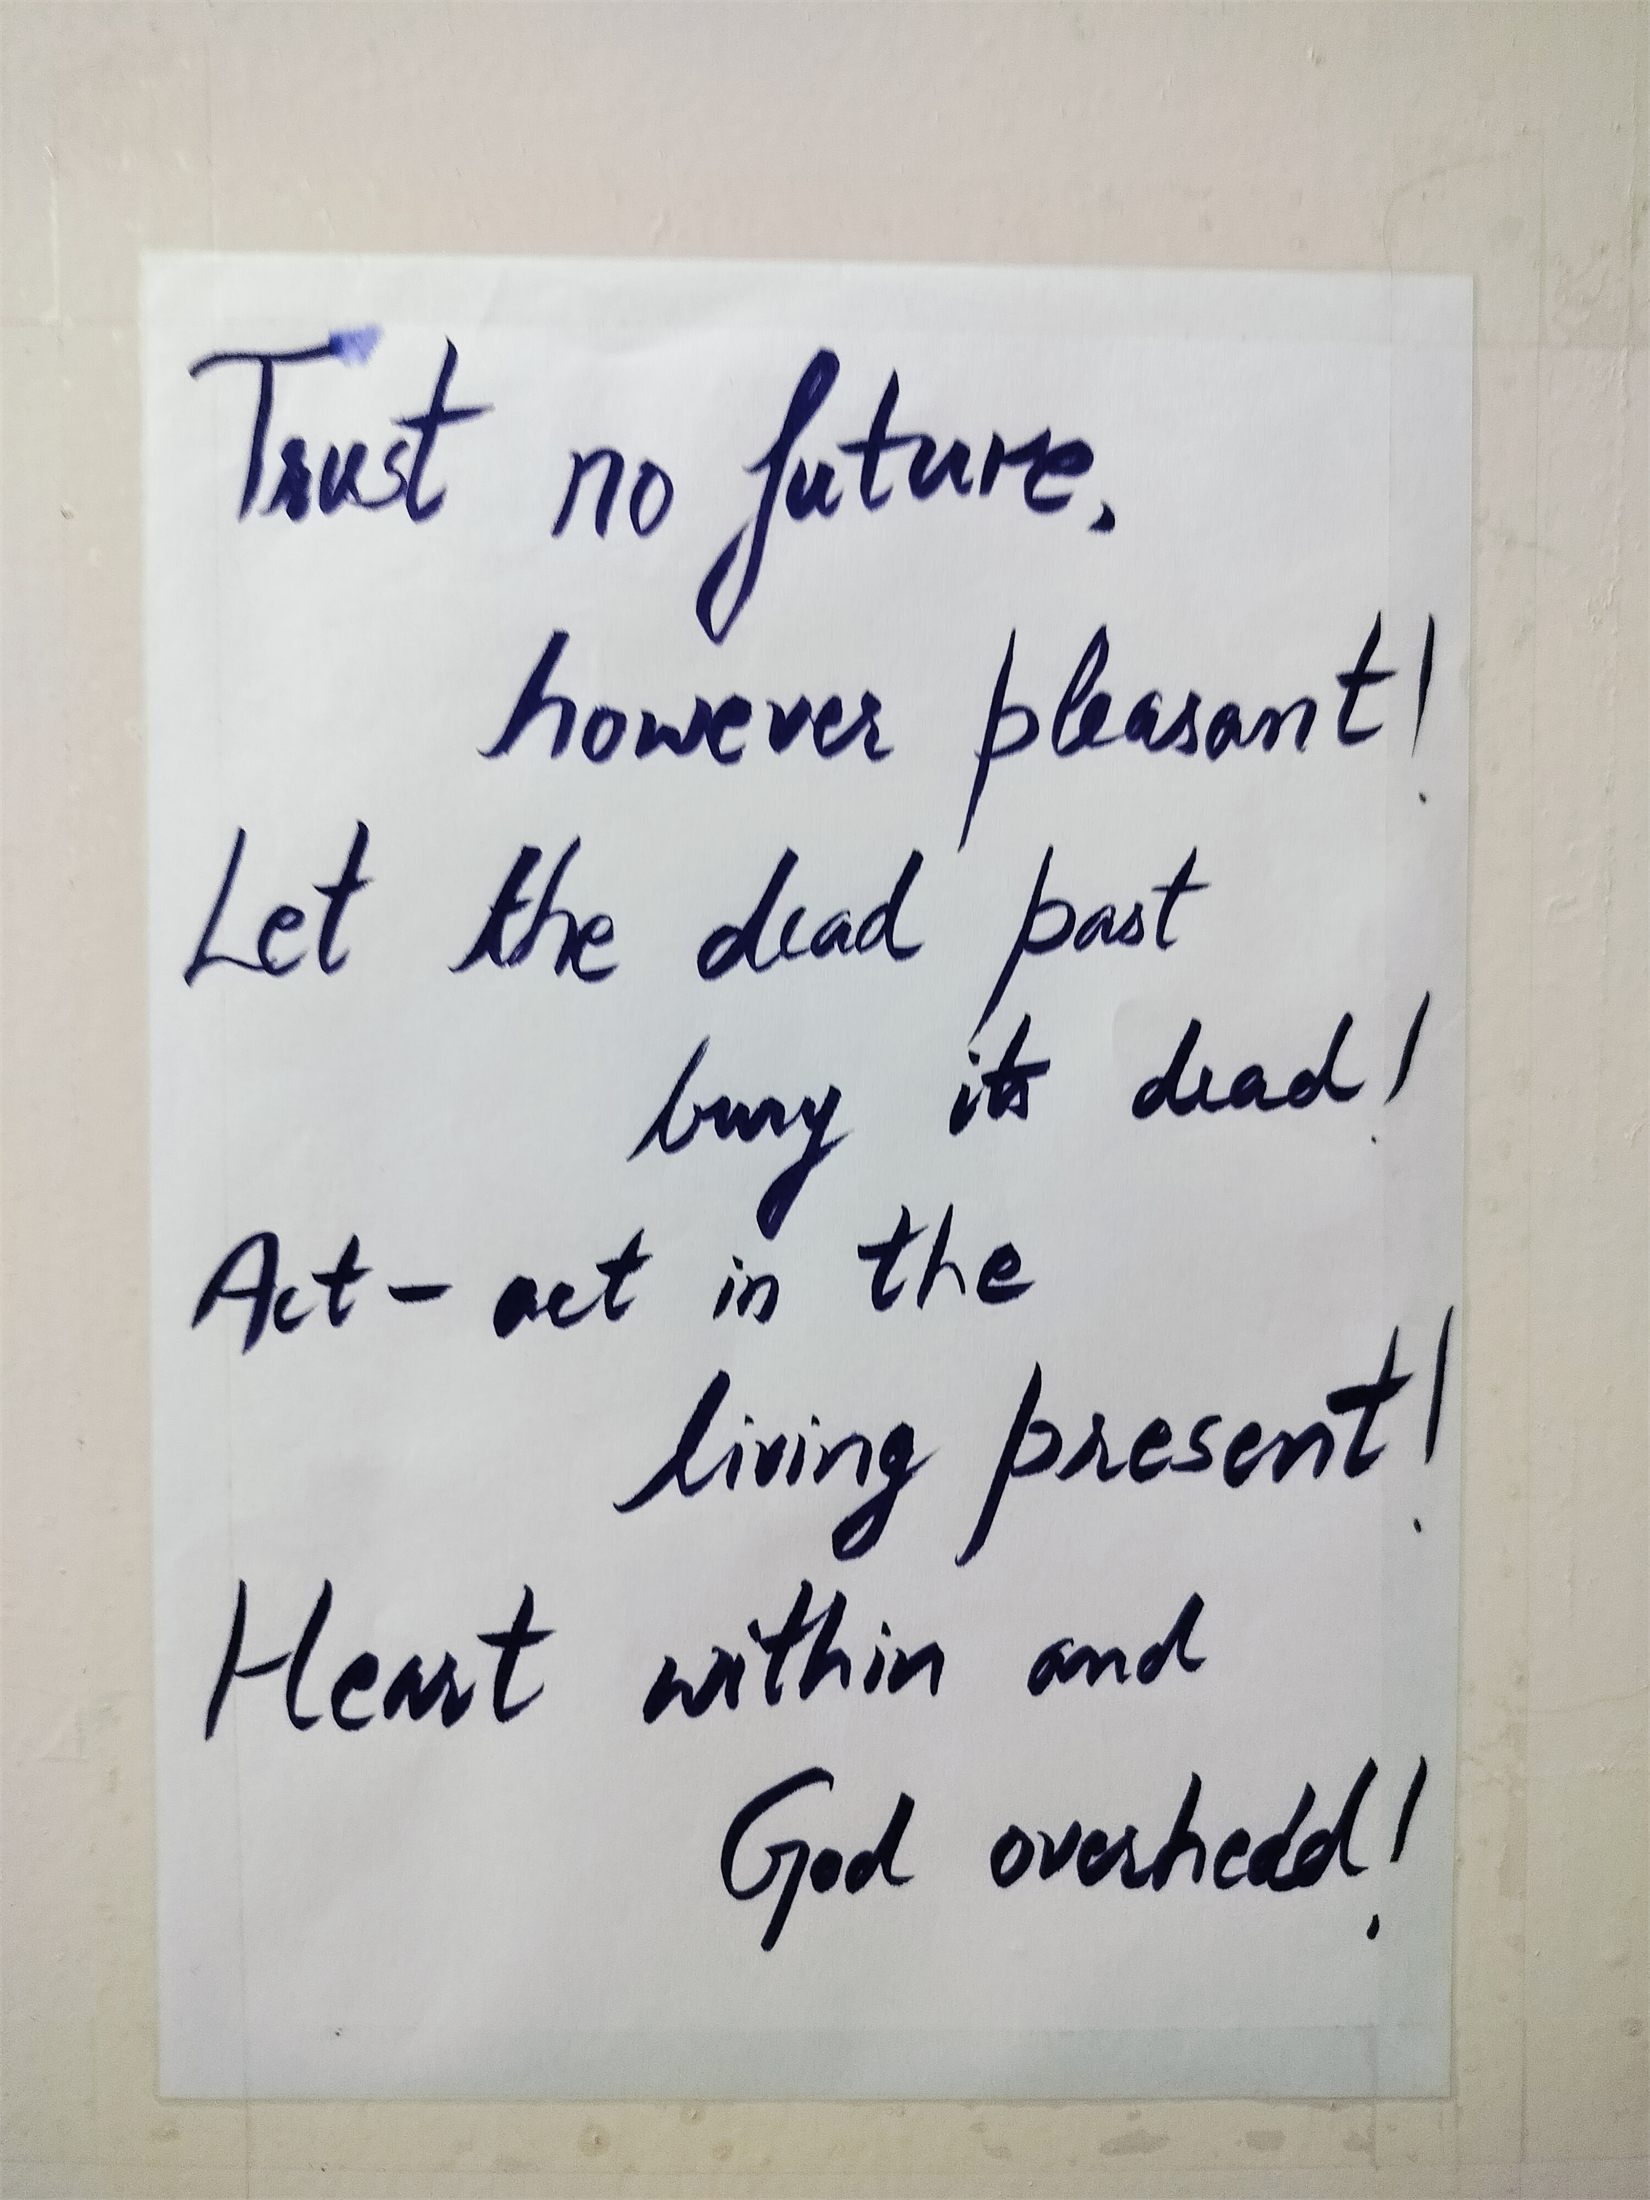 Trust no future,
however pleasant!
Let the dead past
bury its dead!
Act - act in the
living present!
Heart within and
God overhead!